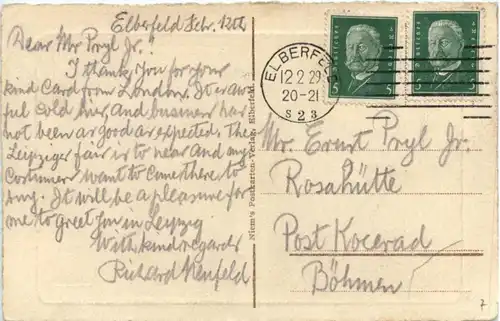 Elberfeld Febr. 12th
Dear Mr Pryl Jr.!
I thank you for your
kind Card from London. It is aw
ful cold hier, and business has
not been as good as expected. The
Leipziger fair is to near and my
Costumers want to Come there to
buy. It will be a pleasure for
me to greet you in Leipzig
With kind regards
Richard Neufeld
Niem's Postkarten-Verlag, Elberfeld.
ELBERFELD
12.2.29
20-21
S 2 3
5 5
Mr. Ernst Pryl Jr.
Rosahütte
Post Kocerad
Böhmen
7